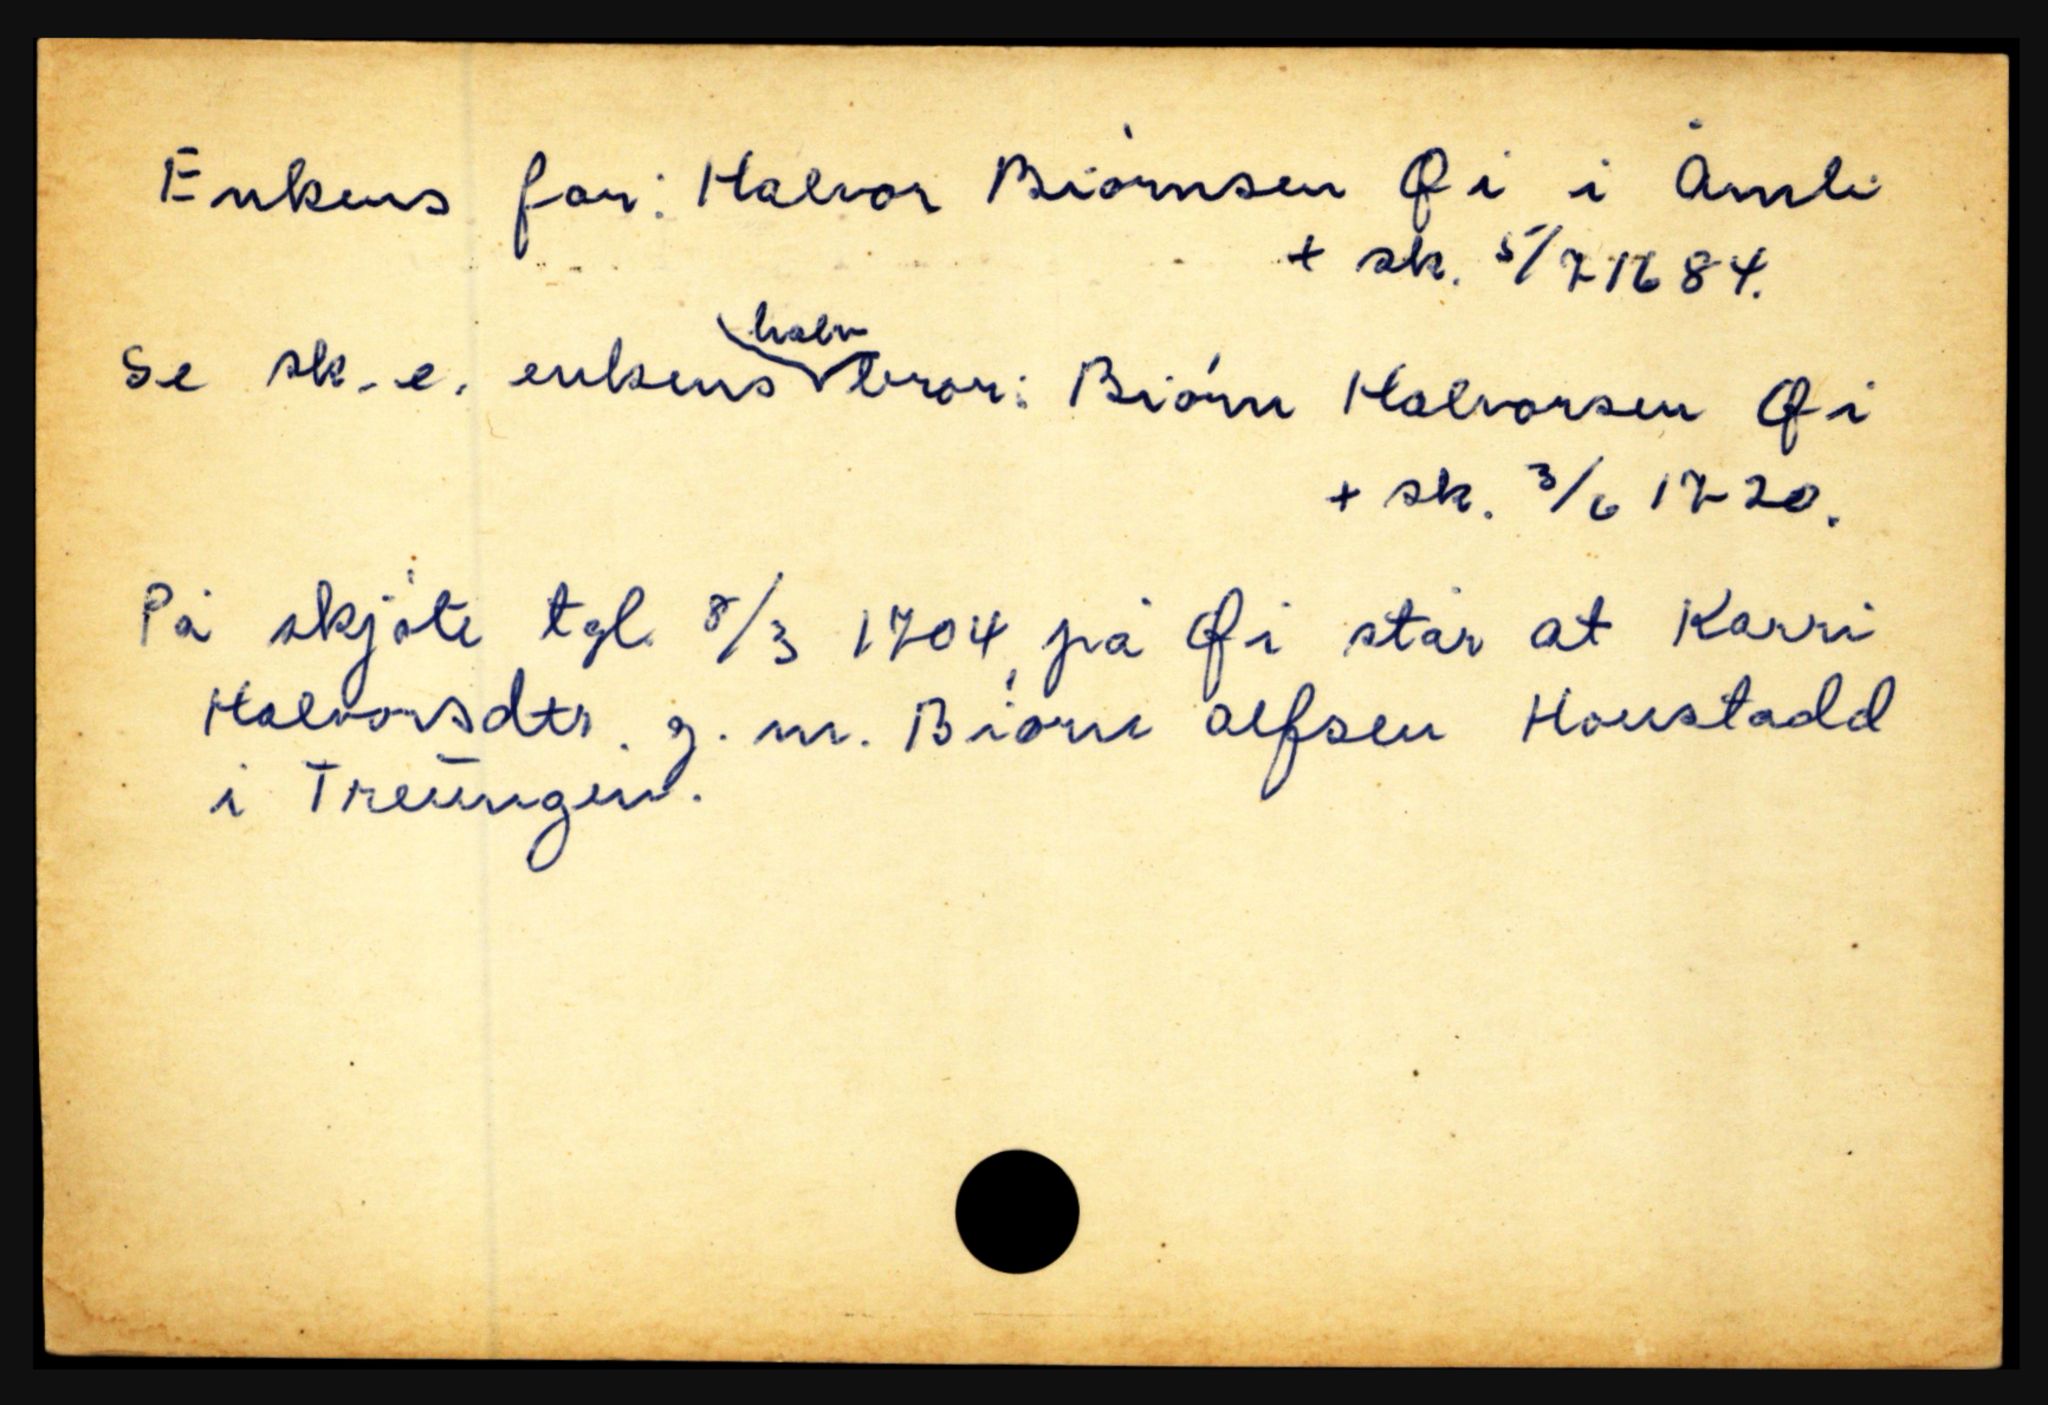 Enkens far: Halvor Biórnsen Qi i Åmli
+ sk. 5/7 1684.
Se sk. e. enkens halv bror: Biórn Halvorsen Qi
+ sk. 3/6 1720.
På skjóte tgl. 8/3 1704 på Qi står at Karri
Halvorsdtr. g. m. Biórn Alfsen Houstadd
i Treungen.